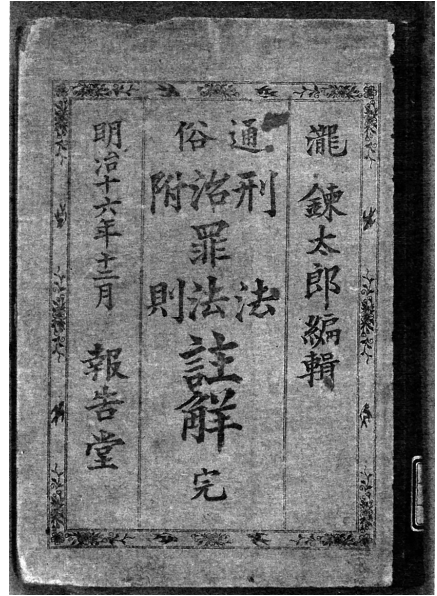 瀧 錬太郎編輯
通俗
刑法
治罪法
附則
註解 完
明治十六年十二月 報告堂